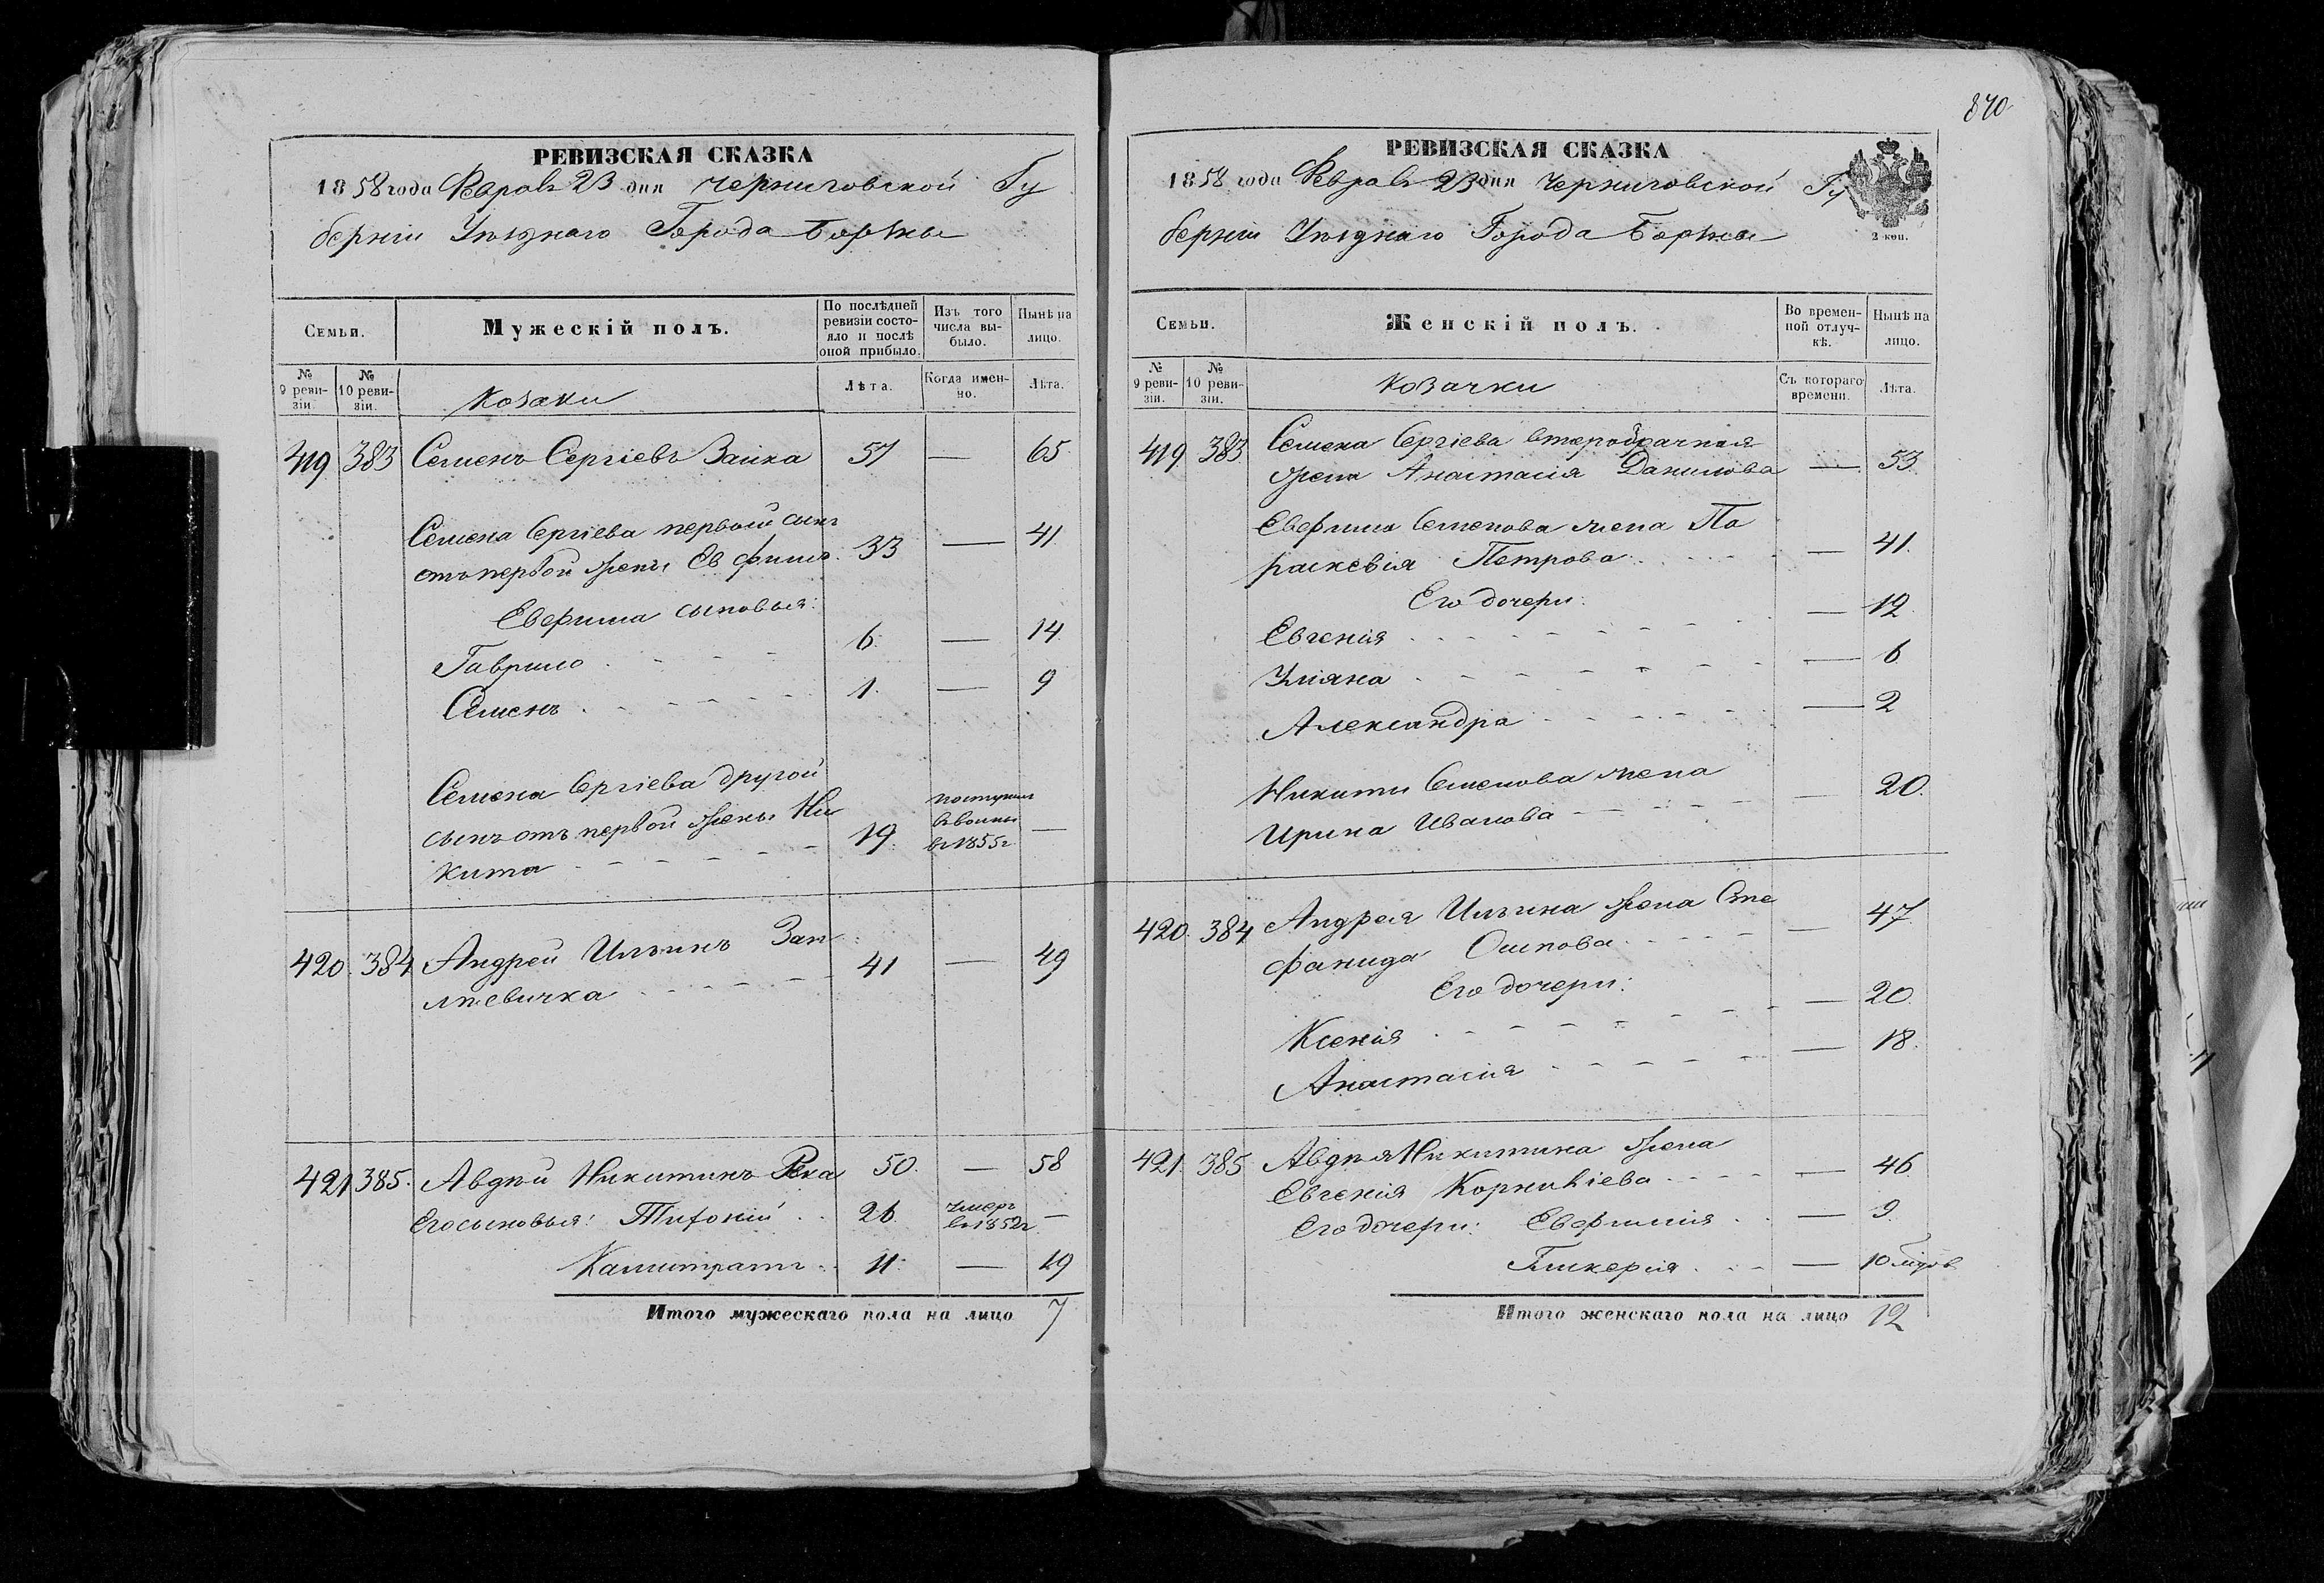 РЕВИЗСКАЯ СКАЗКА
1858 года Феврал 23 дня Черниговской Гу
берніи Уѣзднаго Города Борзны
Семьи.
Мужескій полъ.
По послѣдней ревизіи состояло и послѣ оной прибыло.
Изъ того числа выбыло.
Нынѣ на лицо.
№ 9 ревизіи.
№ 10 ревизіи.
Козаки
Лѣта.
Когда именно.
Лѣта.
419 383 Семенъ Сергіевъ Заика 57 — 65
Семена Сергіева первый сынъ
отъ первой жены Евфимъ 33 — 41
Евфима сыновья:
Гаврило 6 — 14
Семенъ 1 — 9
Семена Сергіева другой
сынъ отъ первой жены Ни
кита 19 поступил в воины в 1855 г —
420 384 Андрей Ильинъ Зап
лѣевичка 41 — 49
421 385 Авдѣй Никитинъ Река 50 — 58
Его сыновья: Тифоній 26 умеръ в 1852 г —
Калистратъ 11 — 19
Итого мужескаго пола на лицо 7
870
РЕВИЗСКАЯ СКАЗКА
1858 года Феврал 23 дня Черниговской Гу
берніи Уѣзднаго Города Борзны
2 коп.
Семьи.
Женскій полъ.
Во временной отлучкѣ.
Нынѣ на лицо.
№ 9 ревизіи.
№ 10 ревизіи.
Козачки
Съ котораго времени.
Лѣта.
419 383 Семена Сергіева второбрачная
жена Анастасія Данилова — 53
Евфима Семенова жена Па
раскевія Петрова — 41
Его дочери:
Евгенія — 12
Уліяна — 6
Александра — 2
Никиты Семенова жена
Ирина Иванова — 20
420 384 Андрея Ильина жена Сте
фанида Осипова — 47
Его дочери:
Ксенія — 20
Анастасія — 18
421 385 Авдѣя Никитина жена
Евгенія Корниліева — 46
Его дочери: Евфимія — 9
Гликерія — 10
Итого женскаго пола на лицо 12